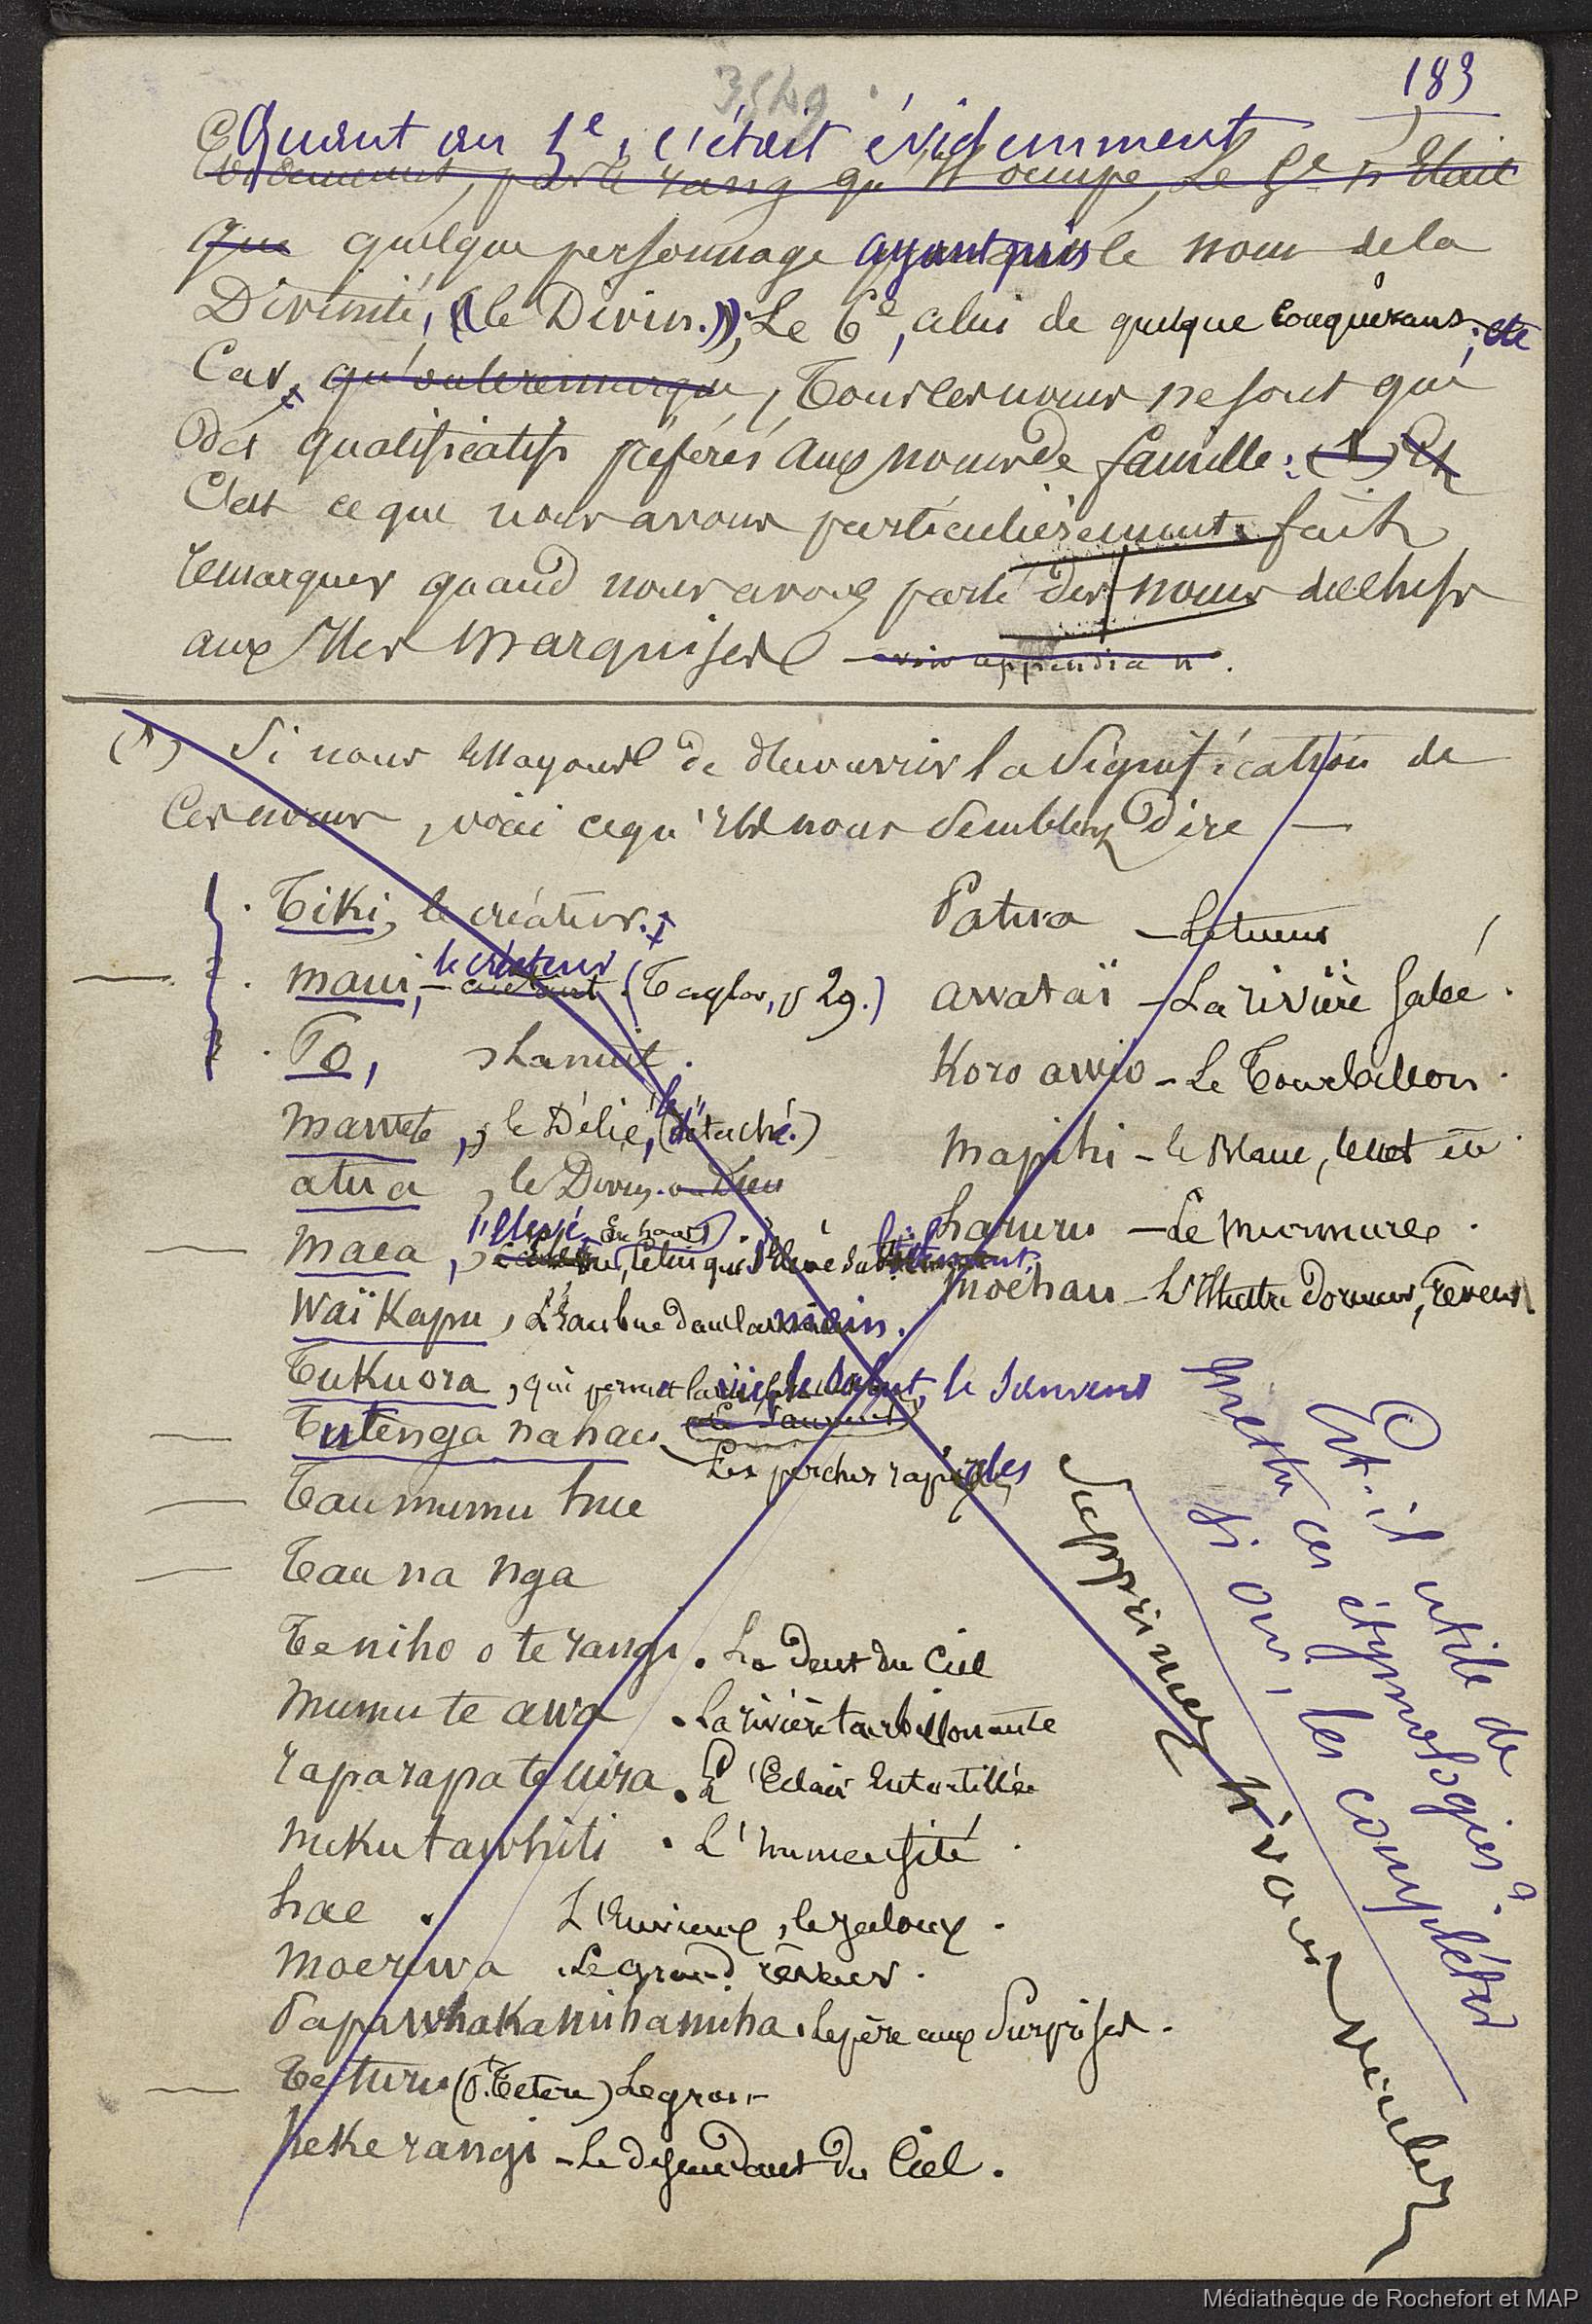 183
3549
Quant au 5e, c'était évidemment
Evidemment, par le rang qu'il occupe, Le 5e n'était
que quelque personnage ayant pris le nom de la
Divinité, (le Divin.); Le 6e, celui de quelque conquérans; etc
Car, qu'on le remarque, Tous les noms ne sont que
des qualificatifs préférés aux noms de famille: (1) Et
C'est ce que nous avons particulièrement fait
remarquer quand nous avons parlé des noms de chefs
aux Iles Marquises — voir appendice n°.
(1) Si nous essayons de découvrir la signification de
ces noms, voici ce qu'ils nous semblent dire —
1 . Tiki, le créateur.
2 . Maui, — le créateur (Taylor, p 29.)
3 . Po, la nuit.
Mawete, le Délié, (le détaché.)
atua, le Divin. ou Dieu
Maea, l'Elevé, en haut, celui qui s'élève subitement.
Waï Kapu, L'Eau bue dans la main.
Tukuora, qui permet la vie, le salut, le sauveur
le sauveur
Tutenga nahau Les perches rapides
Tau mumu hue
Tau na nga
Te niho o te rangi. La Dent du Ciel
Mumu te awa . La rivière tourbillonnante
raparapa te uira. L'Eclair entortillée
Mekutawhiti . L'Immensité .
hae . L'Envieux, le jaloux .
Moeruwa . Le grand rêveur .
Papawhakamihamiha. le père aux surprises .
Te turu (P. Tetere) Le gros —
heke rangi - Le descendant du Ciel .
Patua — Le tueur
awataï — La rivière salée .
Koro awio - Le Tourbillon .
Mapihi - le Blanc, le net etc .
haruru — Le Murmure .
Moehau — L'Illustre dormeur, rêveur
Est-il utile de
mettre ces étymologies ?
Si oui, les compléter
Supprimez si vous voulez
Médiathèque de Rochefort et MAP